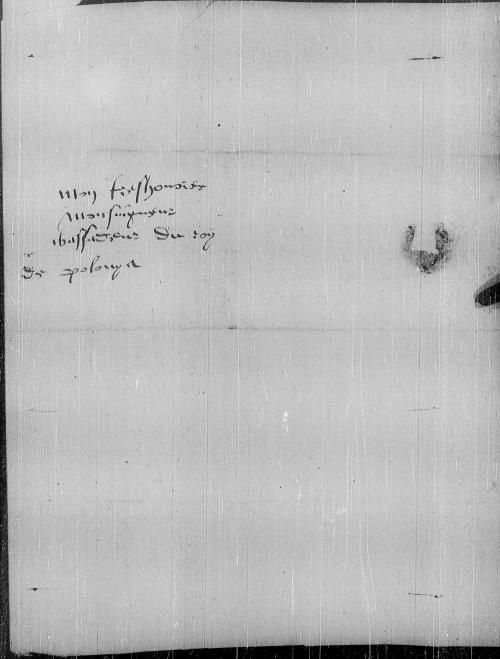 mon treshonore
monseigneur
bassadeur du roy
de polonya